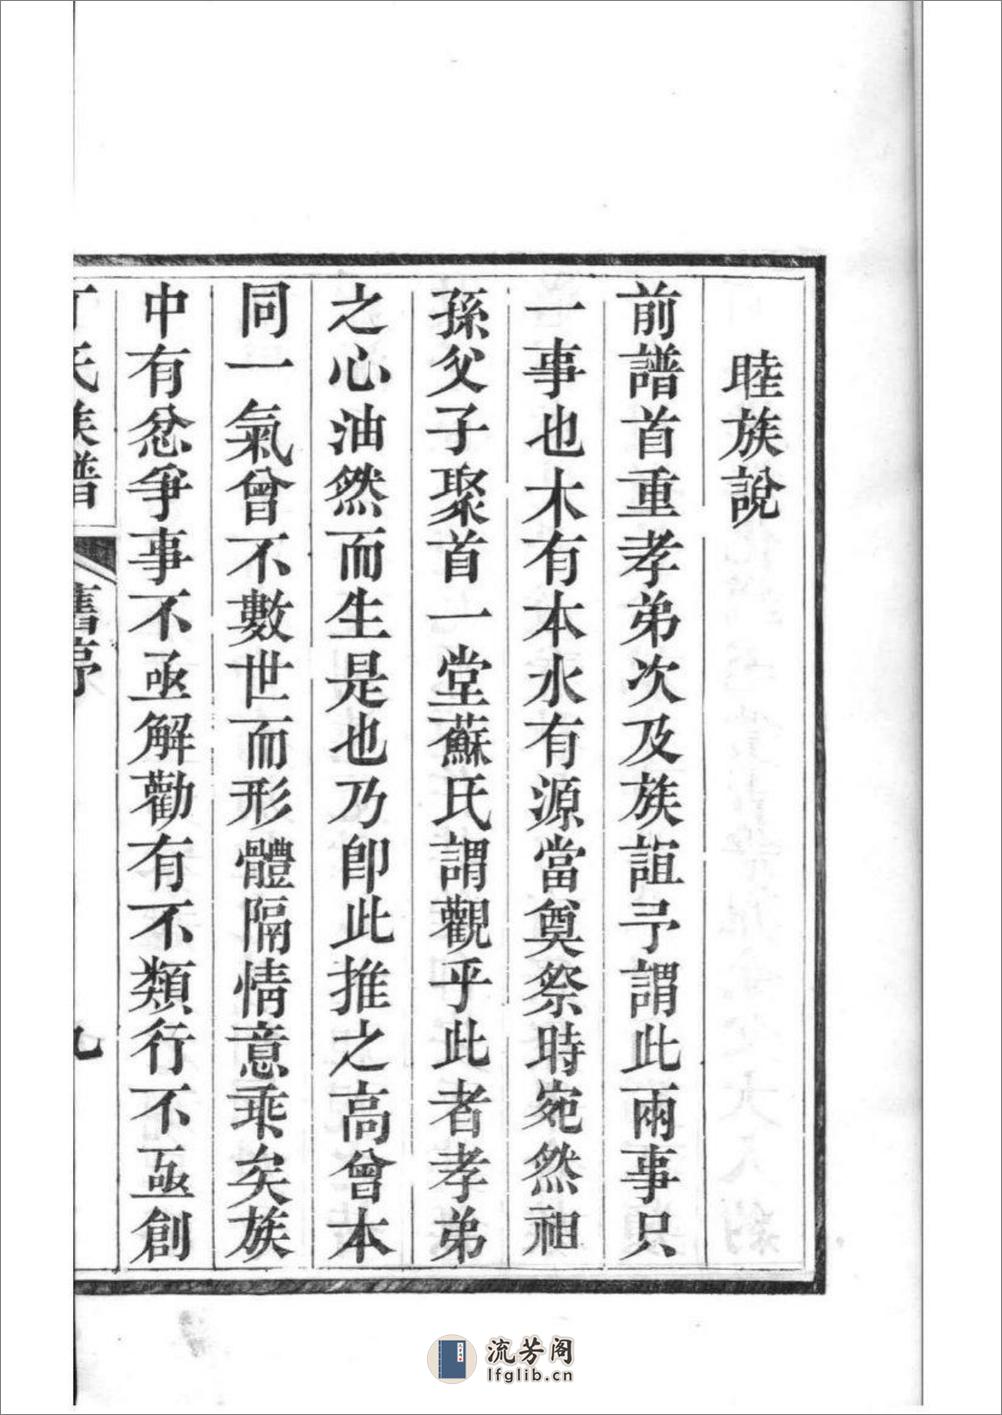 睦族說
前譜首重孝弟次及族誼予謂此兩事只
一事也木有本水有源當奠祭時宛然祖
孫父子聚首一堂蘇氏謂觀乎此者孝弟
之心油然而生是也乃卽此推之高曾本
同一氣曾不數世而形體隔情意乖矣族
中有忿爭事不亟解勸有不類行不亟創
丁氏族譜 舊序 九
流芳阁
lfglib.cn